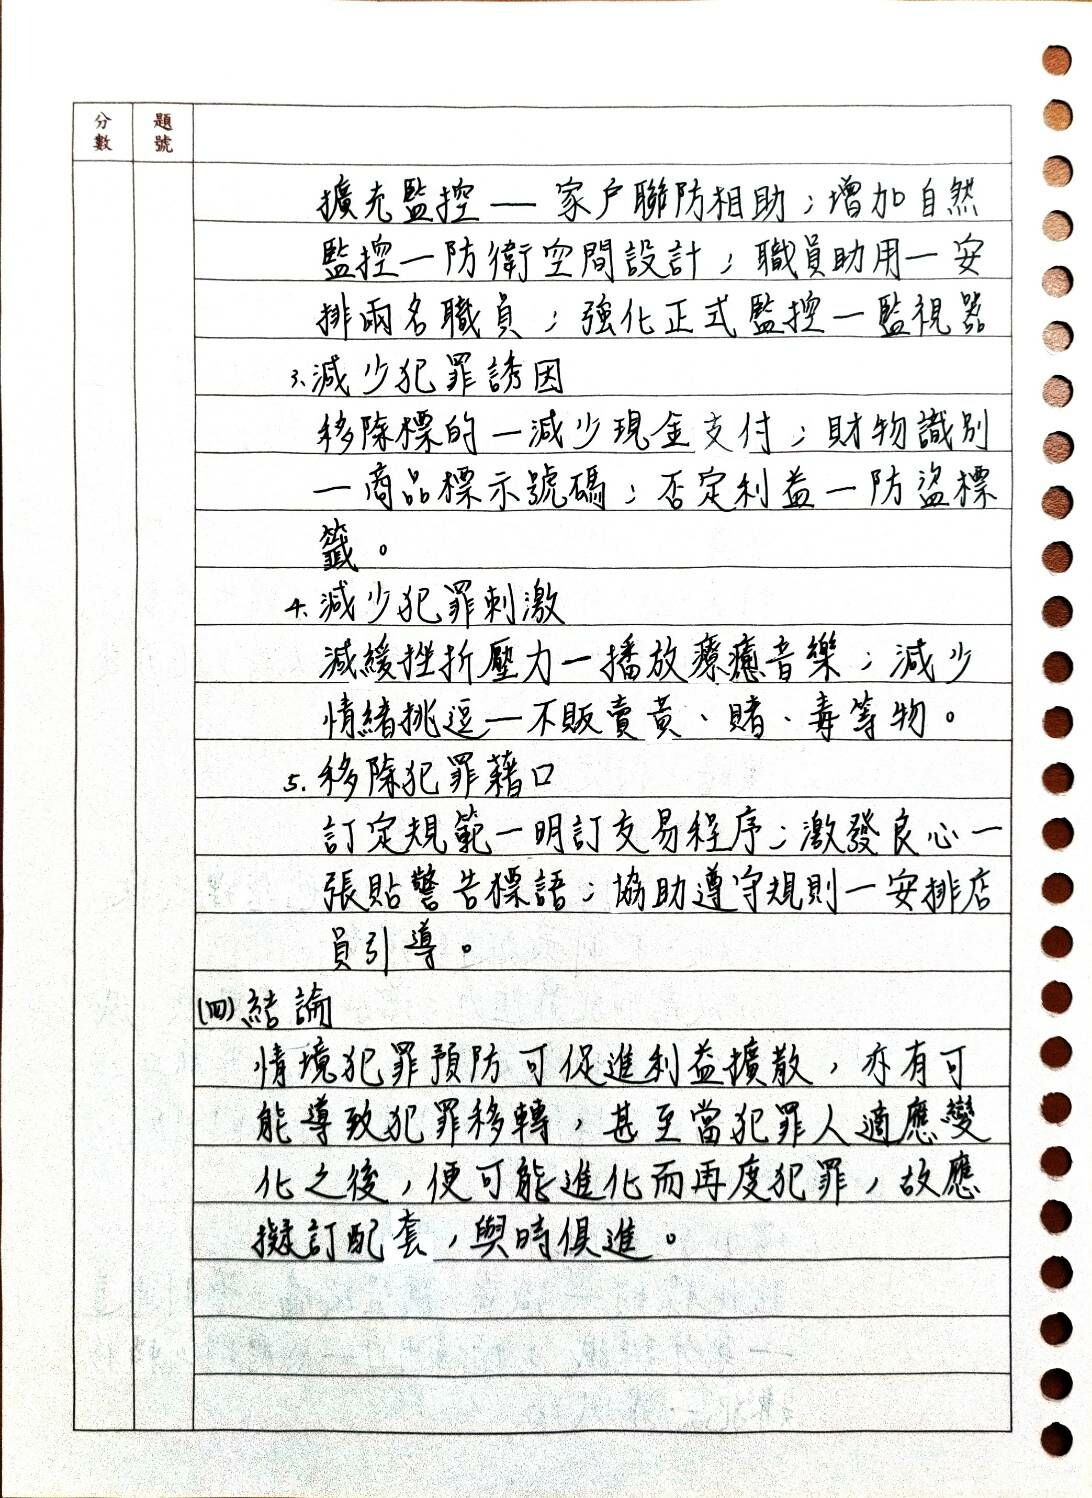 分數 題號
擴充監控—家戶聯防相助；增加自然
監控—防衛空間設計；職員助用—安
排兩名職員；強化正式監控—監視器
3.減少犯罪誘因
移除標的—減少現金支付；財物識別
—商品標示號碼；否定利益—防盜標
籤。
4.減少犯罪刺激
減緩挫折壓力—播放療癒音樂；減少
情緒挑逗—不販賣黃、賭、毒等物。
5.移除犯罪藉口
訂定規範—明訂交易程序；激發良心—
張貼警告標語；協助遵守規則—安排店
員引導。
(四)結論
情境犯罪預防可促進利益擴散，亦有可
能導致犯罪移轉，甚至當犯罪人適應變
化之後，便可能進化而再度犯罪，故應
擬訂配套，與時俱進。